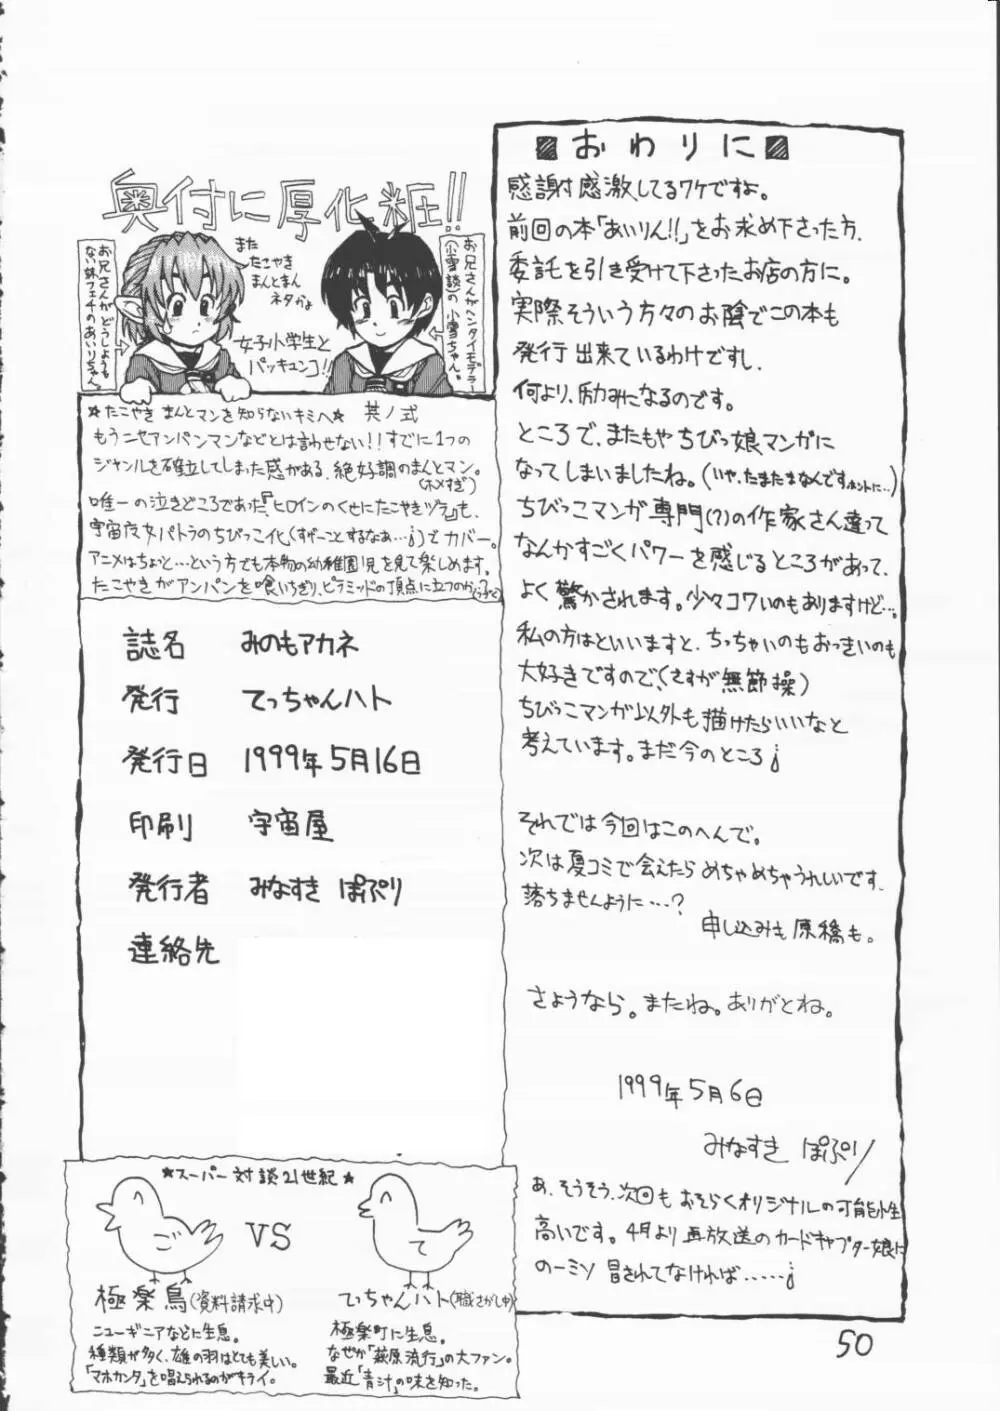 ■おわりに■
感謝感激してるワケですよ。
前回の本「あいりん!!」をお求め下さった方、
委託を引き受けて下さったお店の方に。
実際そういう方々のお陰でこの本も
発行出来ているわけですし、
何より、励みになるのです。
ところで、またもやちびっ娘マンガに
なってしまいましたね。(いや、たまたまなんですホントに…)
ちびっこマンガ専門(?)の作家さん達って
なんかすごくパワーを感じるところがあって、
よく驚かされます。少々コワいのもありますけど…。
私の方はといいますと、ちっちゃいのもおっきいのも
大好きですので、(さすが無節操)
ちびっこマンガ以外も描けたらいいなと
考えています。まだ今のところ
それでは今回はこのへんで。
次は夏コミで会えたらめちゃめちゃうれしいです。
落ちませんように…?
申し込みも原稿も。
さようなら。またね。ありがとね。
1999年5月6日
みなすき ぽぷり
あ、そうそう、次回もおそらくオリジナルの可能性
高いです。4月より再放送のカードキャプター娘に
のーミソ冒されてなければ……
奥付に厚化粧!!
お兄さんがどうしようも
ない妹フェチのあいりちゃん。
また
たこやき
まんとまん
ネタかよ
女子小学生と
バッキュンコ!!
お兄さんがヘンタイモデラー
(小雪談)の小雪ちゃん。
★たこやきまんとマンを知らないキミへ★ 其ノ弐
もうニセアンパンマンなどとは言わせない!!すでに1つの
ジャンルを確立してしまった感がある、絶好調のまんとマン。
(ホメすぎ)
唯一の泣きどころであった『ヒロインのくせにたこやきヅラ』も、
宇宙少女パトラのちびっこ化(すげーことするなぁ…)でカバー。
アニメはちょと…という方でも本物の幼稚園児を見て楽しめます。
たこやきがアンパンを喰いちぎり、ピラミッドの頂点に立つのか
誌名 みのもアカネ
発行 てっちゃんハト
発行日 1999年5月16日
印刷 宇宙屋
発行者 みなすき ぽぷり
連絡先
★スーパー対談21世紀★
ご
VS
て
極楽鳥(資料請求中)
ニューギニアなどに生息。
種類が多く、雄の羽はとても美しい。
「マホカンタ」を唱えられるのがキライ。
てっちゃんハト(職さがし中)
極楽町に生息。
なぜか「萩原流行」の大ファン。
最近「青汁」の味を知った。
50